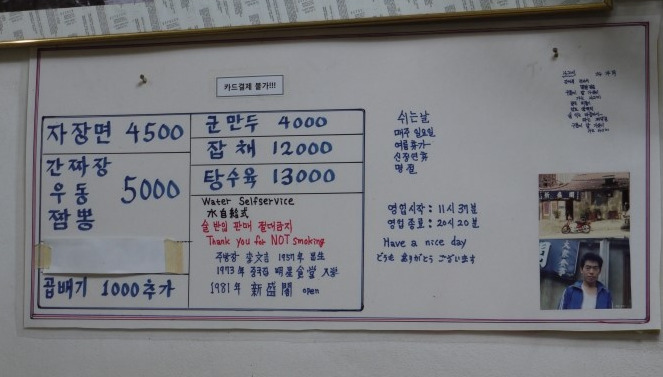 카드결제 불가!!!
자장면 4500
간짜장
우동 5000
짬뽕
곱배기 1000추가
군만두 4000
잡채 12000
탕수육 13000
Water Selfservice
水自給式
술 반입 판매 절대금지
Thank you for NOT smoking
주방장 李文吉 1957年 出生
1973年 중국집 明星食堂 入社
1981年 新盛閣 open
쉬는날
매주 일요일
여름휴가
신정연휴
명절
영업시작 : 11시 39분
영업종료 : 20시 20분
Have a nice day
どうも ありがとう ございます